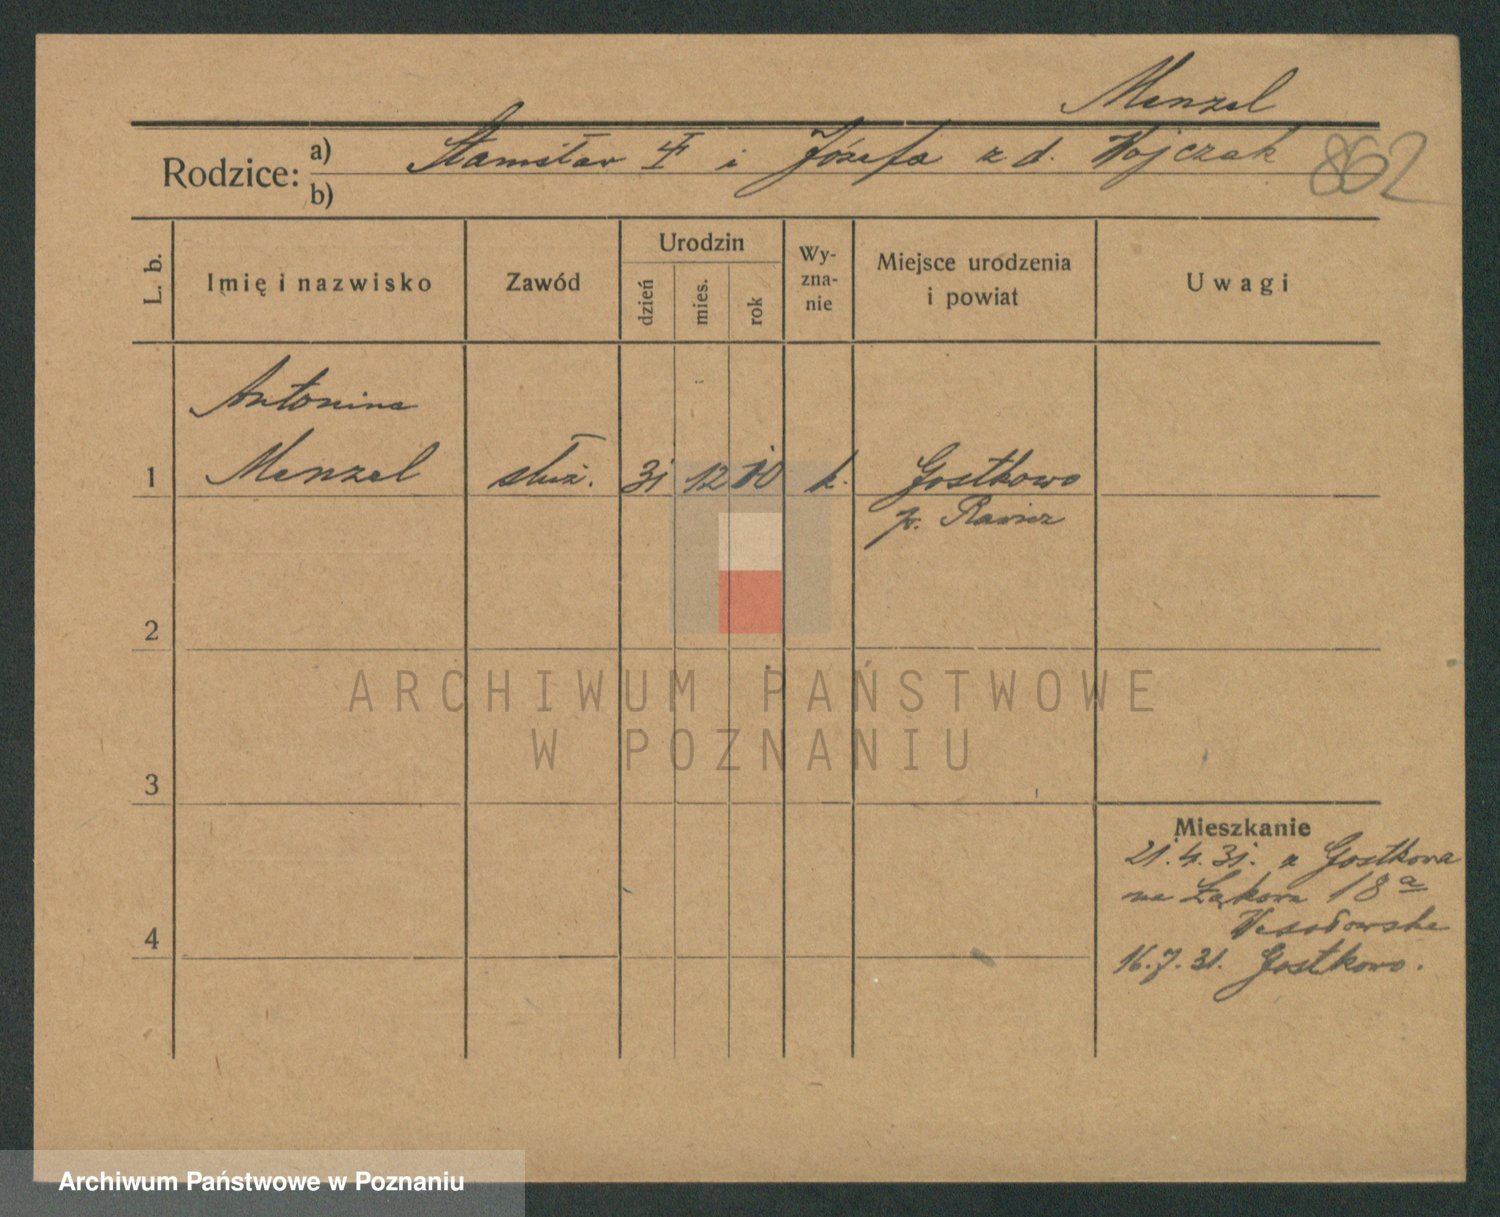 Menzel
Rodzice: a) Stanisław † i Józefa z d. Wojczak 862
b)
L. b. Imię i nazwisko Zawód Urodzin dzień mies. rok Wy-zna-nie Miejsce urodzenia i powiat Uwagi
Antonina
1 Menzel służ. 31 12 10 k. Gostkowo
p. Rawicz
2
ARCHIWUM PAŃSTWOWE
W POZNANIU
3
Mieszkanie
21.4.31. z Gostkowa
na Łąkowa 18a
Wesołowska
4
16.7.31. Gostkowo.
Archiwum Państwowe w Poznaniu